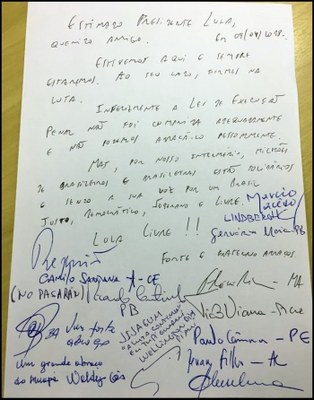 ESTIMADO PRESIDENTE LULA,
QUERIDO AMIGO. Em 09/04/2018.
ESTIVEMOS AQUI E SEMPRE
ESTAREMOS. AO SEU LADO, FIRMES NA
LUTA.
INFELIZMENTE A LEI DE EXECUÇÃO
PENAL NÃO FOI CUMPRIDA ADEQUADAMENTE
E NÃO PODEMOS ABRAÇÁ-LO PESSOALMENTE.
MAS, POR NOSSO INTERMÉDIO, MILHÕES
DE BRASILEIROS E BRASILEIRAS ESTÃO SOLIDÁRIOS
E SENDO A SUA VOZ POR UM BRASIL
JUSTO, DEMOCRÁTICO, SOBERANO E LIVRE.
LULA LIVRE!!
FORTE E FRATERNO ABRAÇO
LINDBERGH
Requião
CAMILO SANTANA - CE
(NO PASARÁN)
PB
- MA
Tião Viana - Acre
um forte
abraço
Paulo Câmara - PE
Renan Filho - AL
Um grande abraço
do Wellington